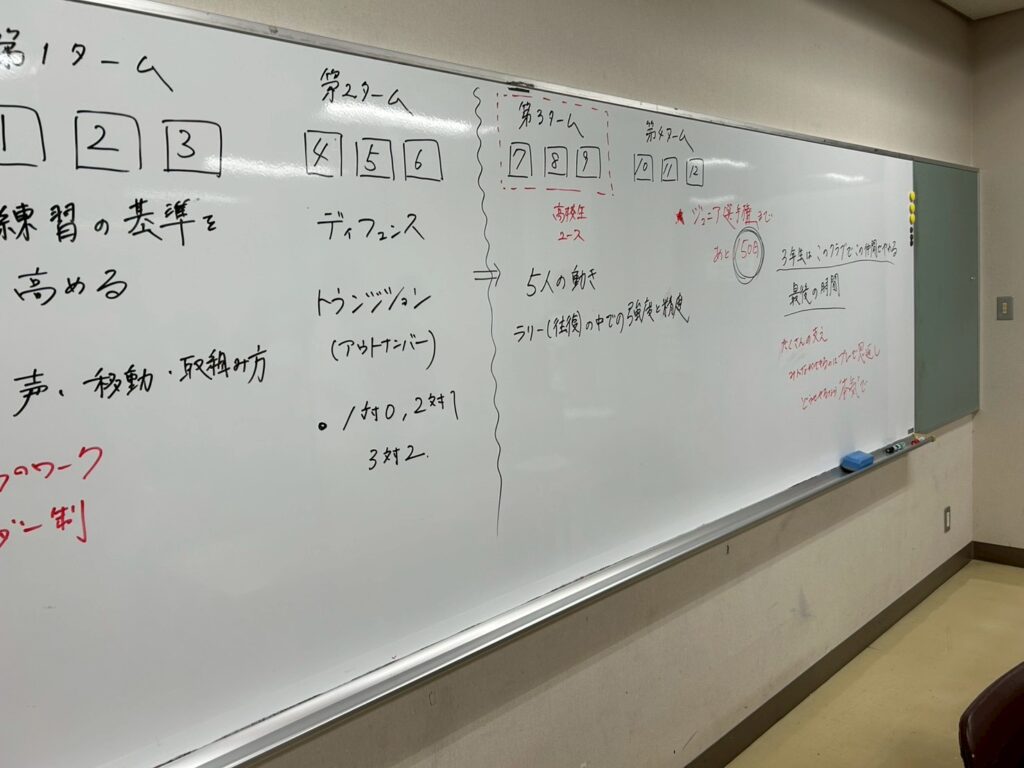 第1ターム
1 2 3
練習の基準を
高める
声、移動・取組み方
のワーク
ダー制
第2ターム
4 5 6
ディフェンス
トランジション
(アウトナンバー)
• 1対0, 2対1
3対2.
⇒
第3ターム
7 8 9
高校生
ユース
5人の動き
ラリー(往復)の中での強度と精度
第4ターム
10 11 12
★ ジュニア選手権まで
あと 150日
3年生はこのクラブでこの仲間とやれる
最後の時間
たくさんの支え
プレーで恩返し
"本気"で